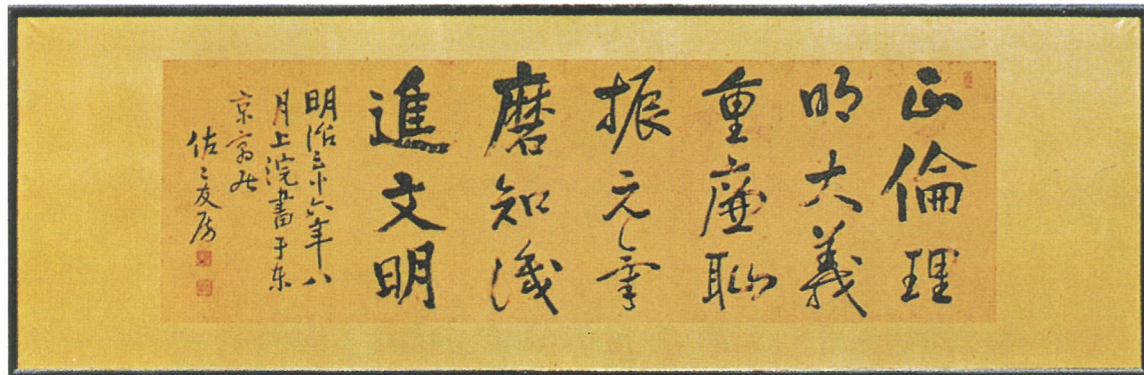 正倫理
明大義
重廉恥
振元氣
磨知識
進文明
明治三十六年八
月上浣書于东
京寓居
佐々友房